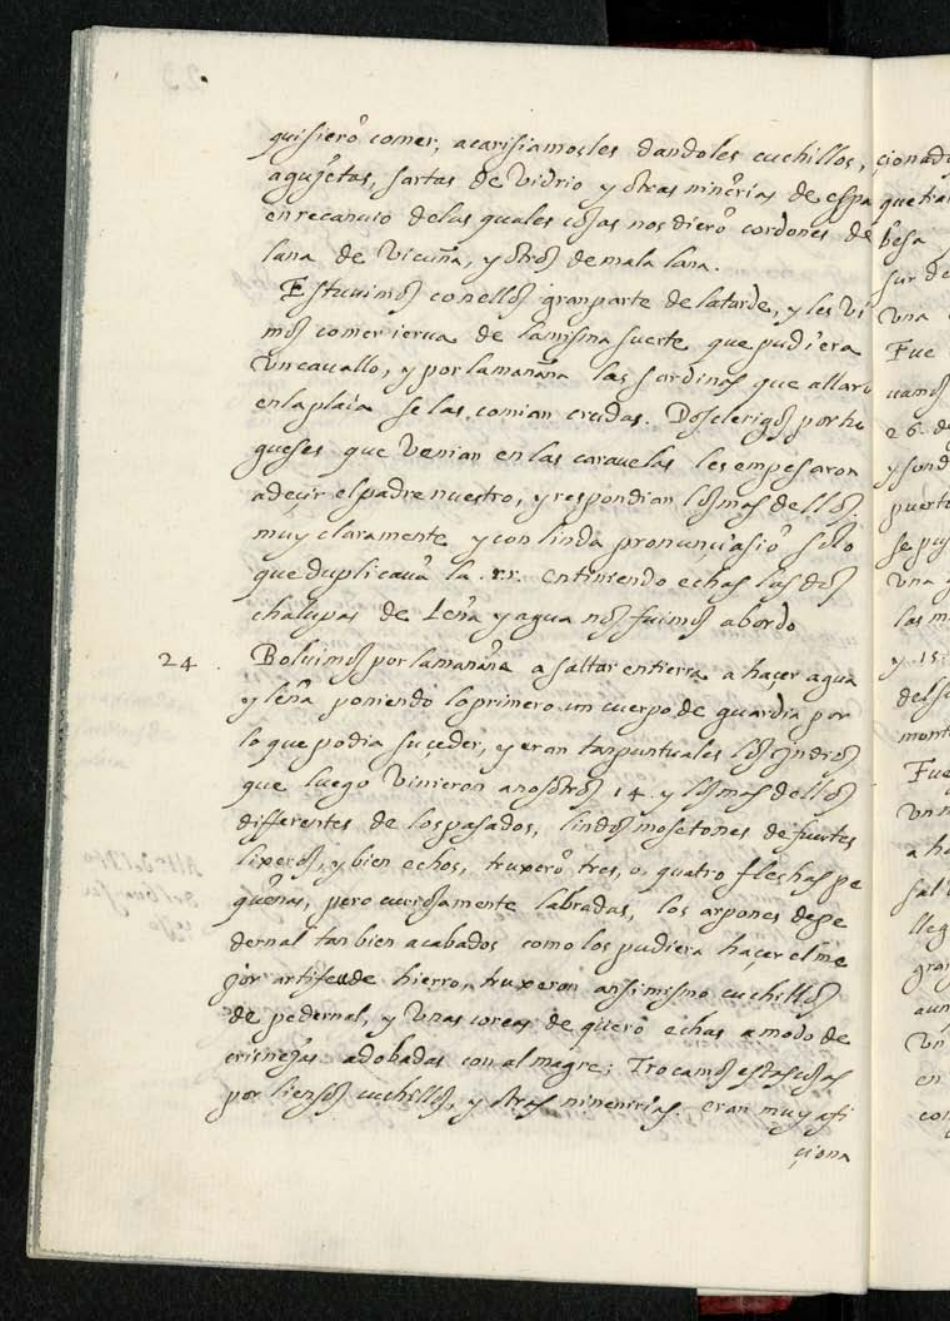 quisierõ comer, acarisiamosles dandoles cuchillos,
agujetas, sartas de vidrio y otras niñerias de espa
en recanvio de las quales cosas nos dierõ cordones de
lana de vicuña, y otros de mala lana.
Estuvimos con ellos gran parte de la tarde, y les vi
mos comer ierva de la misma suerte que pudiera
un cavallo, y por la mañana las sardinas que allarõ
en la plaia se las comian crudas. Dos clerigos portu
gueses que venian en las caravelas les empesaron
a deçir el padre nuestro, y respondian los mas dellos
muy claramente y con linda pronunçiasiõ solo
que duplicavã la .rr. entiniendo echas las dos
chalupas de Leña y agua nos fuimos a bordo
24 . Bolvimos por la mañana a saltar en tierra a haçer agua
y leña poniendo lo primero un cuerpo de guardia por
lo que podia suçeder, y eran tan puntuales los yndios
que luego vinieron a nosotros 14 y los mas dellos
differentes de los pasados, lindos mosetones de fuertes
lixeros, y bien echos, truxerõ tres, o quatro flechas pe
queñas, pero curiosamente labradas, los arpones de pe
dernal tan bien acabados como los pudiera haçer el me
jor artifiçe de hierro, truxeron ansimismo cuchillos
de pedernal, y unas coreas de quero echas a modo de
crisnejas adobadas con almagre; Trocamos estas cosas
por liensos cuchillos, y otras niñerias. eran muy afi
çiona
çionad
que tra
besa
sur de
Una
Fue
vamos
26 de
y fond
puerto
se pus
Una
las m
y 15
del s
mont
Fue
Un n
a ha
sal
lleg
gran
aun
Un
en
con